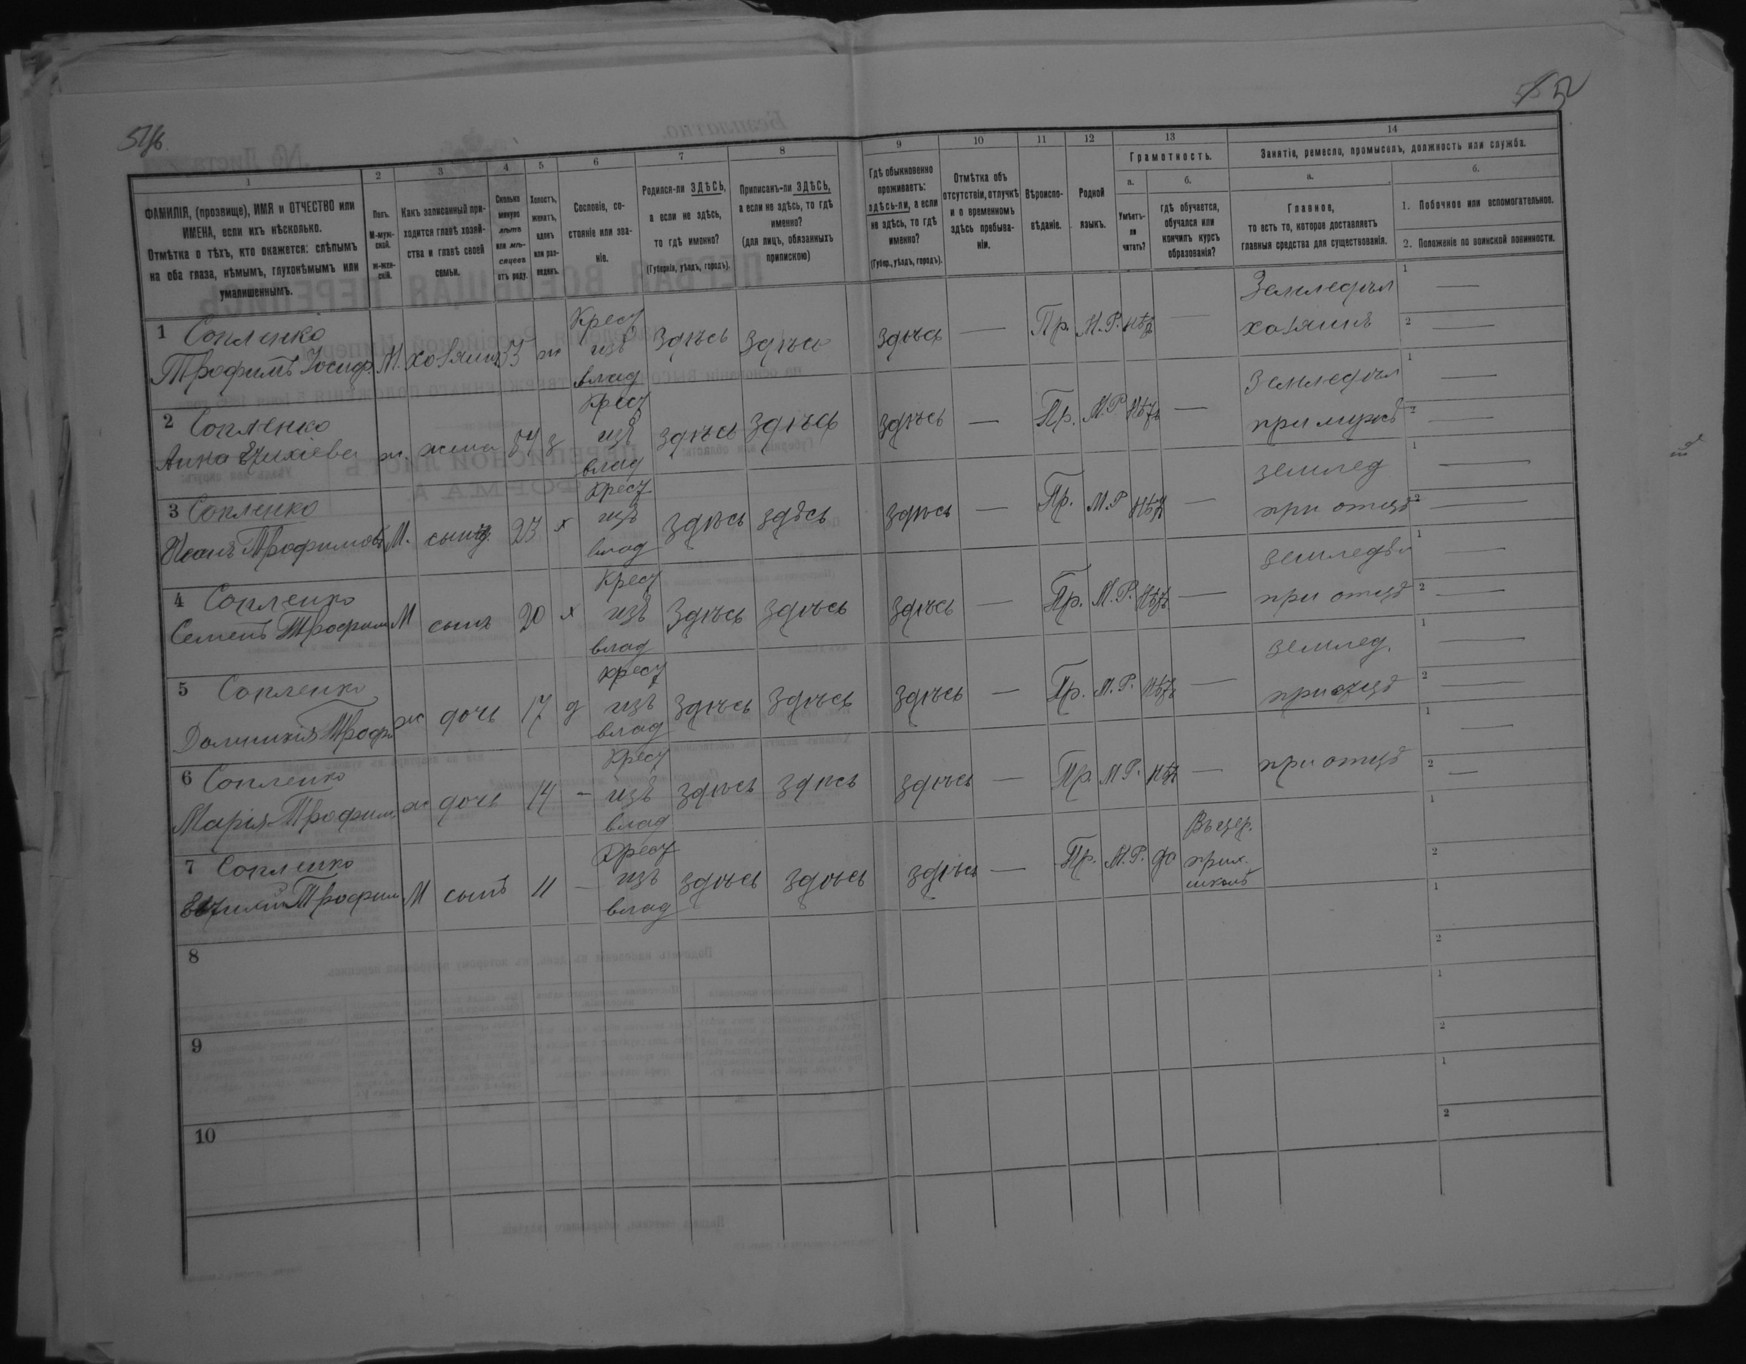 1
ФАМИЛІЯ, (прозвище), ИМЯ и ОТЧЕСТВО или
ИМЕНА, если ихъ нѣсколько.
Отмѣтка о тѣхъ, кто окажется: слѣпымъ
на оба глаза, нѣмымъ, глухонѣмымъ или
умалишеннымъ.
2
Полъ.
М-муж-
ской.
ж-жен-
скій.
3
Какъ записанный при-
ходится главѣ хозяй-
ства и главѣ своей
семьи.
4
Сколько
минуло
лѣтъ
или мѣ-
сяцевъ
отъ роду.
5
Холостъ,
женатъ,
вдовъ
или раз-
веденъ.
6
Сословіе, со-
стояніе или зва-
ніе.
7
Родился-ли ЗДѢСЬ,
а если не здѣсь,
то гдѣ именно?
(Губернія, уѣздъ, городъ).
8
Приписанъ-ли ЗДѢСЬ,
а если не здѣсь, то гдѣ
именно?
(для лицъ, обязанныхъ
припискою)
9
Гдѣ обыкновенно
проживаетъ:
здѣсь-ли, а если
не здѣсь, то гдѣ
именно?
(Губер., уѣздъ, городъ).
10
Отмѣтка объ
отсутствіи, отлучкѣ
и о временномъ
здѣсь пребыва-
ніи.
11
Вѣроиспо-
вѣданіе.
12
Родной
языкъ.
13
Грамотность.
а.
Умѣетъ-
ли
читать?
б.
гдѣ обучается,
обучался или
кончилъ курсъ
образованія?
14
Занятіе, ремесло, промыселъ, должность или служба.
а.
Главное,
то есть то, которое доставляетъ
главныя средства для существованія.
б.
1. Побочное или вспомогательное.
2. Положеніе по воинской повинности.
1 Сопленко
Трофимъ Іосиф. М. хозяинъ 55 ж Крест изъ влад здѣсь здѣсь здѣсь — Пр. М.Р. нѣт — Земледѣл хозяинъ 1 — 2 —
2 Сопленко
Анна ж. жена 54 з Крест изъ влад здѣсь здѣсь здѣсь — Пр. М.Р нѣтъ — Земледѣл при мужѣ 1 — 2 —
3 Сопленко
Иванъ Трофимовъ М. сынъ 23 х Крест изъ влад здѣсь здѣсь здѣсь — Пр. М.Р нѣт — землед при отцѣ 1 — 2 —
4 Сопленко
Семенъ Трофим М сынъ 20 х Крест изъ влад здѣсь здѣсь здѣсь — Пр. М.Р. нѣтъ — земледѣл при отцѣ 1 — 2 —
5 Сопленко
Домникія Трофи ж дочь 17 д крест изъ влад здѣсь здѣсь здѣсь — Пр. М.Р. нѣтъ — землед. при отцѣ 1 — 2 —
6 Сопленко
Марія Трофим. ж дочь 14 — Крест изъ влад здѣсь здѣсь здѣсь — Пр. М.Р. нѣт — при отцѣ 1 — 2 —
7 Сопленко
Трофим М сынъ 11 — Крест изъ влад здѣсь здѣсь здѣсь — Пр. М.Р. да Въ цер. прих. школѣ 1 2
8 1 2
9 1 2
10 1 2